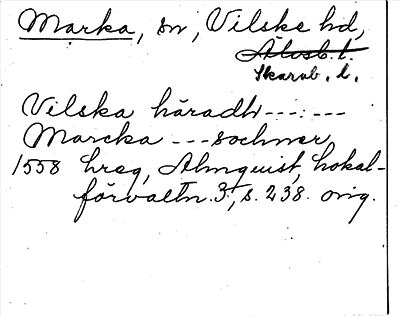 Marka, sn, Vilske hd,
Älvsb. l.
Skarab. l.
Vilska häradh ---:---
Marcka --- sochner
1558 hreg, Almquist, Lokal-
förvaltn. 3, s. 238. orig.